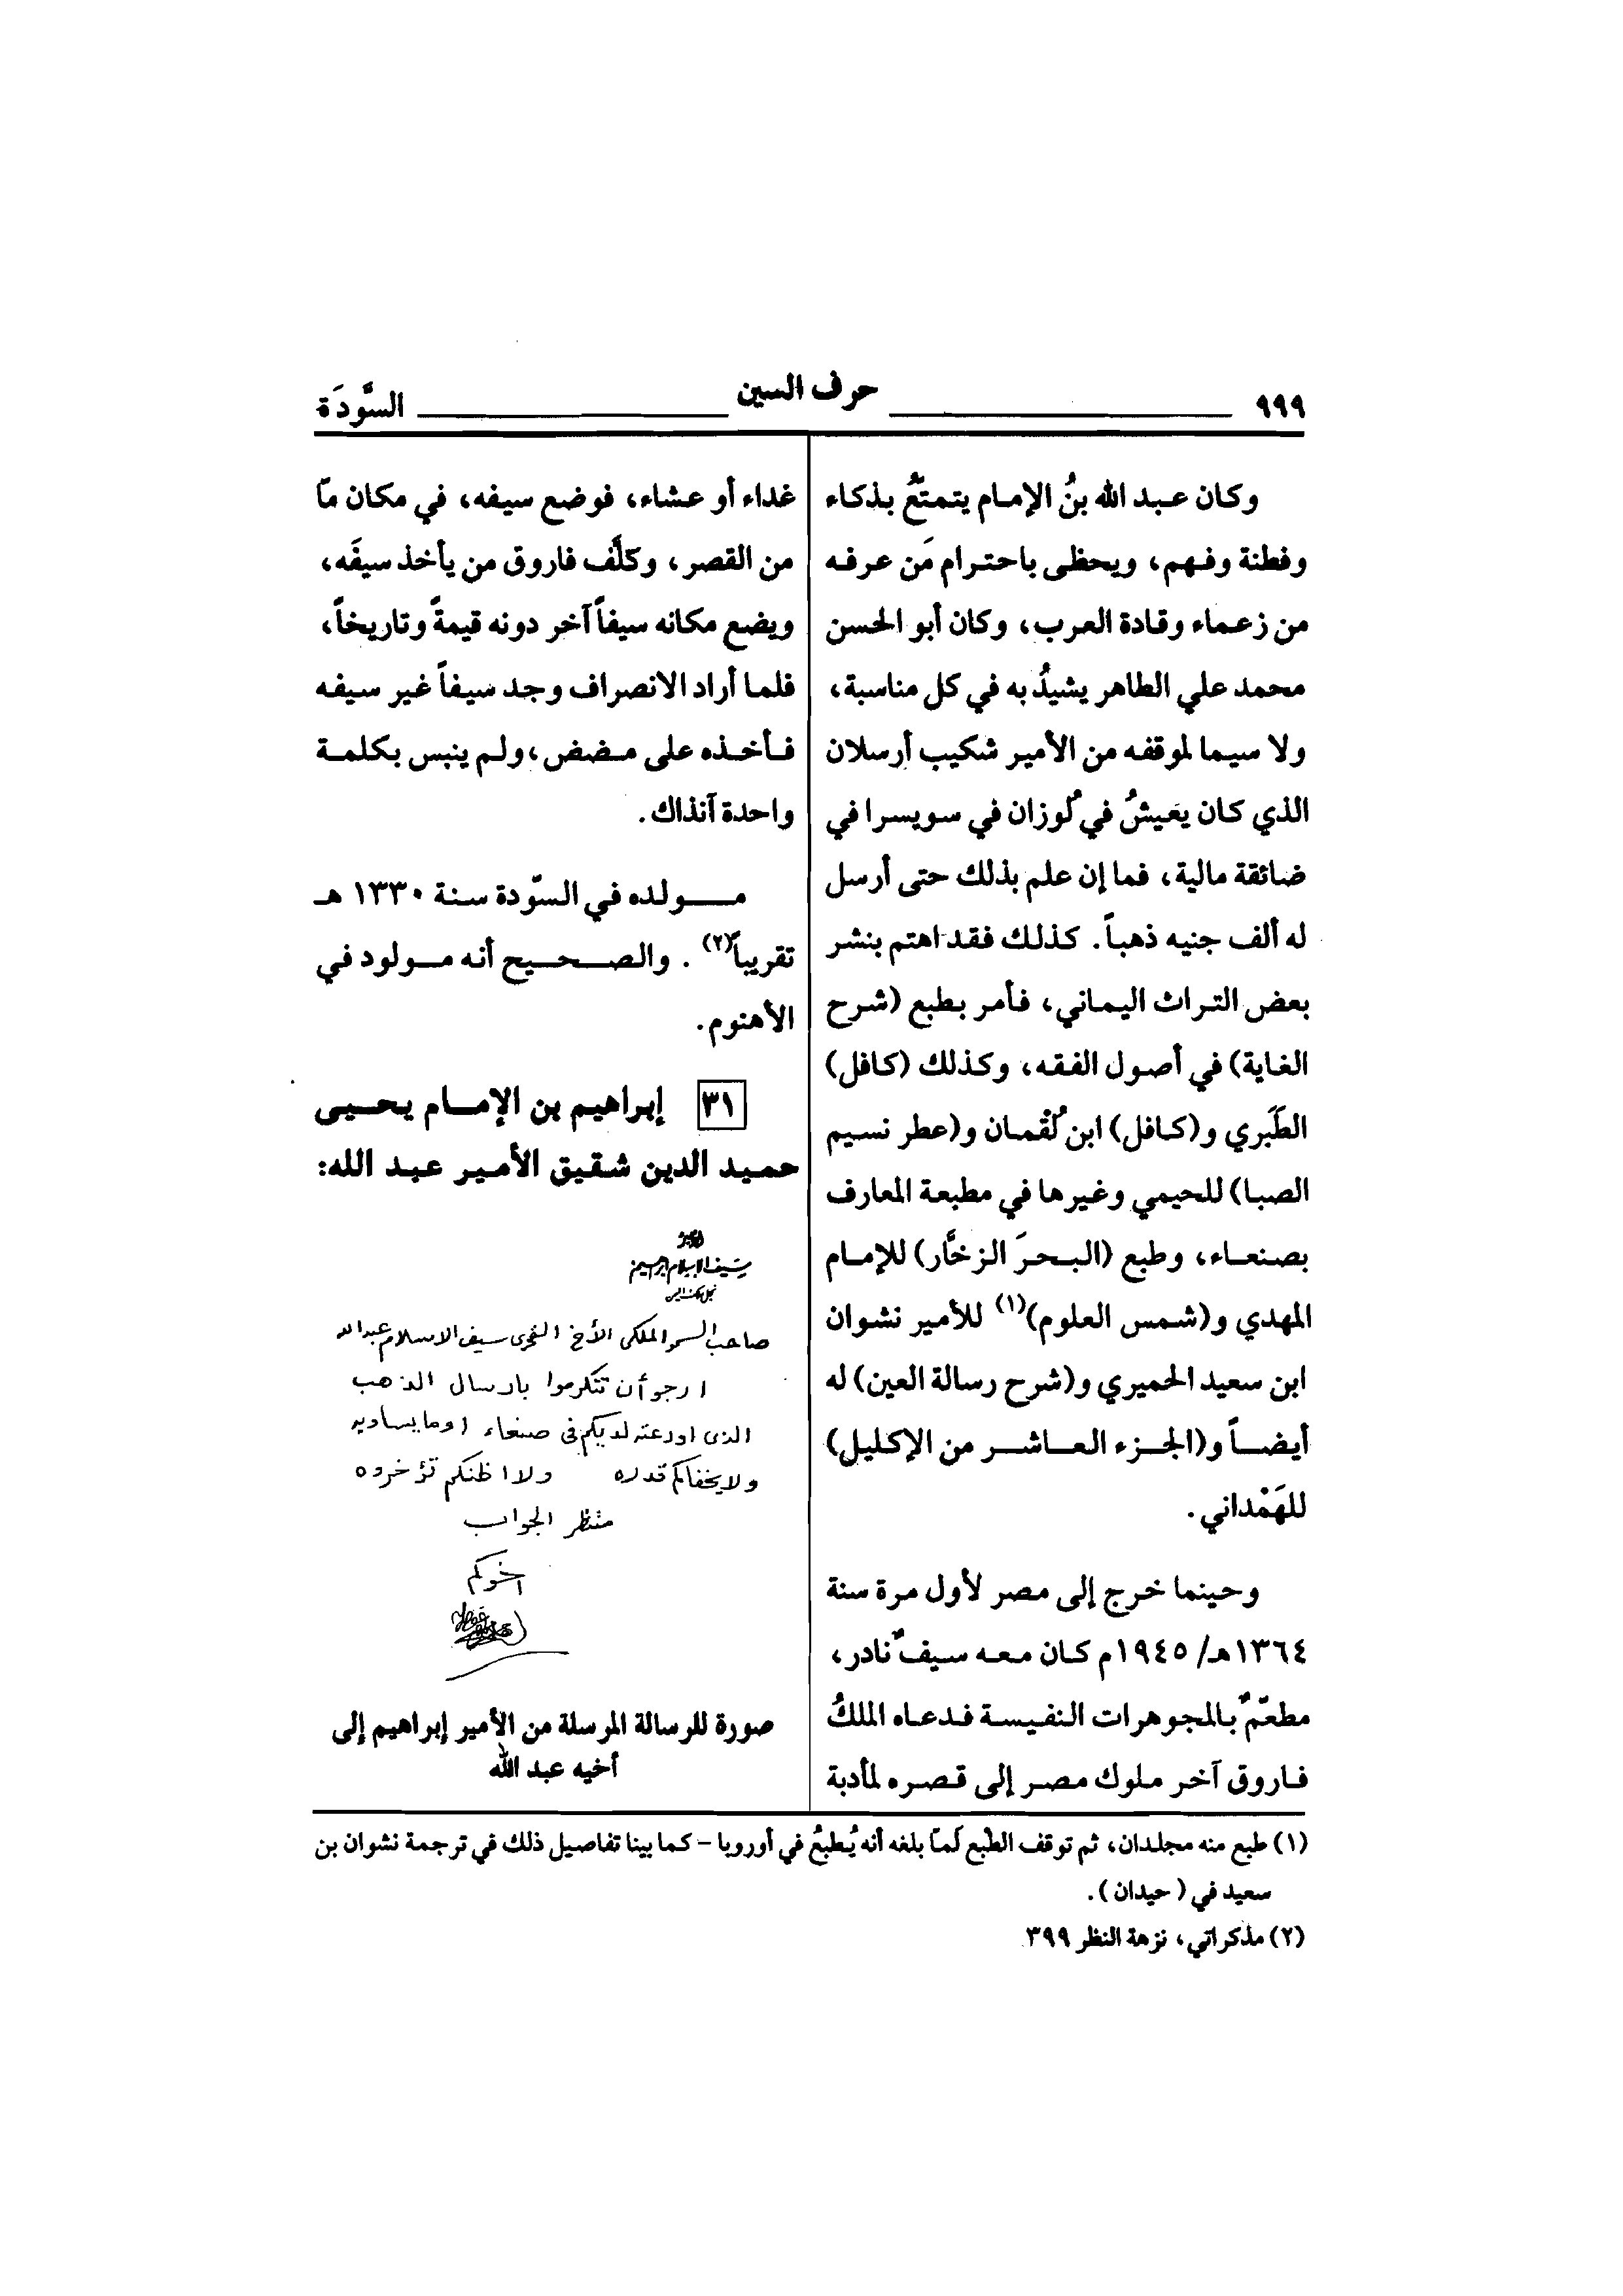 ٩٩٩
حرف السين
السَّودَة
وكان عبد الله بنُ الإمام يتمتعُ بذكاء
وفطنة وفهم، ويحظى باحترام مَن عرفه
من زعماء وقادة العرب، وكان أبو الحسن
محمد علي الطاهر يشيدُ به في كل مناسبة،
ولا سيما لموقفه من الأمير شكيب أرسلان
الذي كان يعيشُ في لُوزان في سويسرا في
ضائقة مالية، فما إن علم بذلك حتى أرسل
له ألف جنيه ذهباً. كذلك فقد اهتم بنشر
بعض التراث اليماني، فأمر بطبع (شرح
الغاية) في أصول الفقه، وكذلك (كافل)
الطَّبَري و(كافل) ابن لُقْمان و(عطر نسيم
الصبا) للحيمي وغيرها في مطبعة المعارف
بصنعاء، وطبع (البحرَ الزخَّار) للإمام
المهدي و(شمس العلوم)(١) للأمير نشوان
ابن سعيد الحميري و(شرح رسالة العين) له
أيضاً و(الجزء العاشر من الإكليل)
للهَمْداني.
وحينما خرج إلى مصر لأول مرة سنة
١٣٦٤هـ/ ١٩٤٥م كان معه سيفٌ نادر،
مطعّمٌ بالمجوهرات النفيسة فدعاه الملكُ
فاروق آخر ملوك مصر إلى قصره لمأدبة
غداء أو عشاء، فوضع سيفه، في مكان مّا
من القصر، وكلَّف فاروق من يأخذ سيفَه،
ويضع مكانه سيفاً آخر دونه قيمةً وتاريخاً،
فلما أراد الانصراف وجد سيفاً غير سيفه
فأخذه على مضض، ولم ينبس بكلمة
واحدة آنذاك.
مولده في السّودة سنة ١٣٣٠ هـ
تقريباً(٢). والصحيح أنه مولود في
الأهنوم.
٣١ إبراهيم بن الإمام يحيى
حميد الدين شقيق الأمير عبد الله:
سيف الإسلام إبراهيم
صاحب السمو الملكي الأخ الفخري سيف الاسلام عبدالله
ارجو أن تتكرموا بارسال الذهب
الذي اودعته لديكم في صنعاء اوما يساويه
ولا يخفاكم قدره ولا اظنكم تؤخروه
منتظر الجواب
اخوكم
صورة للرسالة المرسلة من الأمير إبراهيم إلى
أخيه عبد الله
(١) طبع منه مجلدان، ثم توقف الطَّبع لَمّا بلغه أنه يُطبعُ في أوروبا – كما بينا تفاصيل ذلك في ترجمة نشوان بن
سعيد في (حيدان).
(٢) مذكراتي، نزهة النظر ٣٩٩